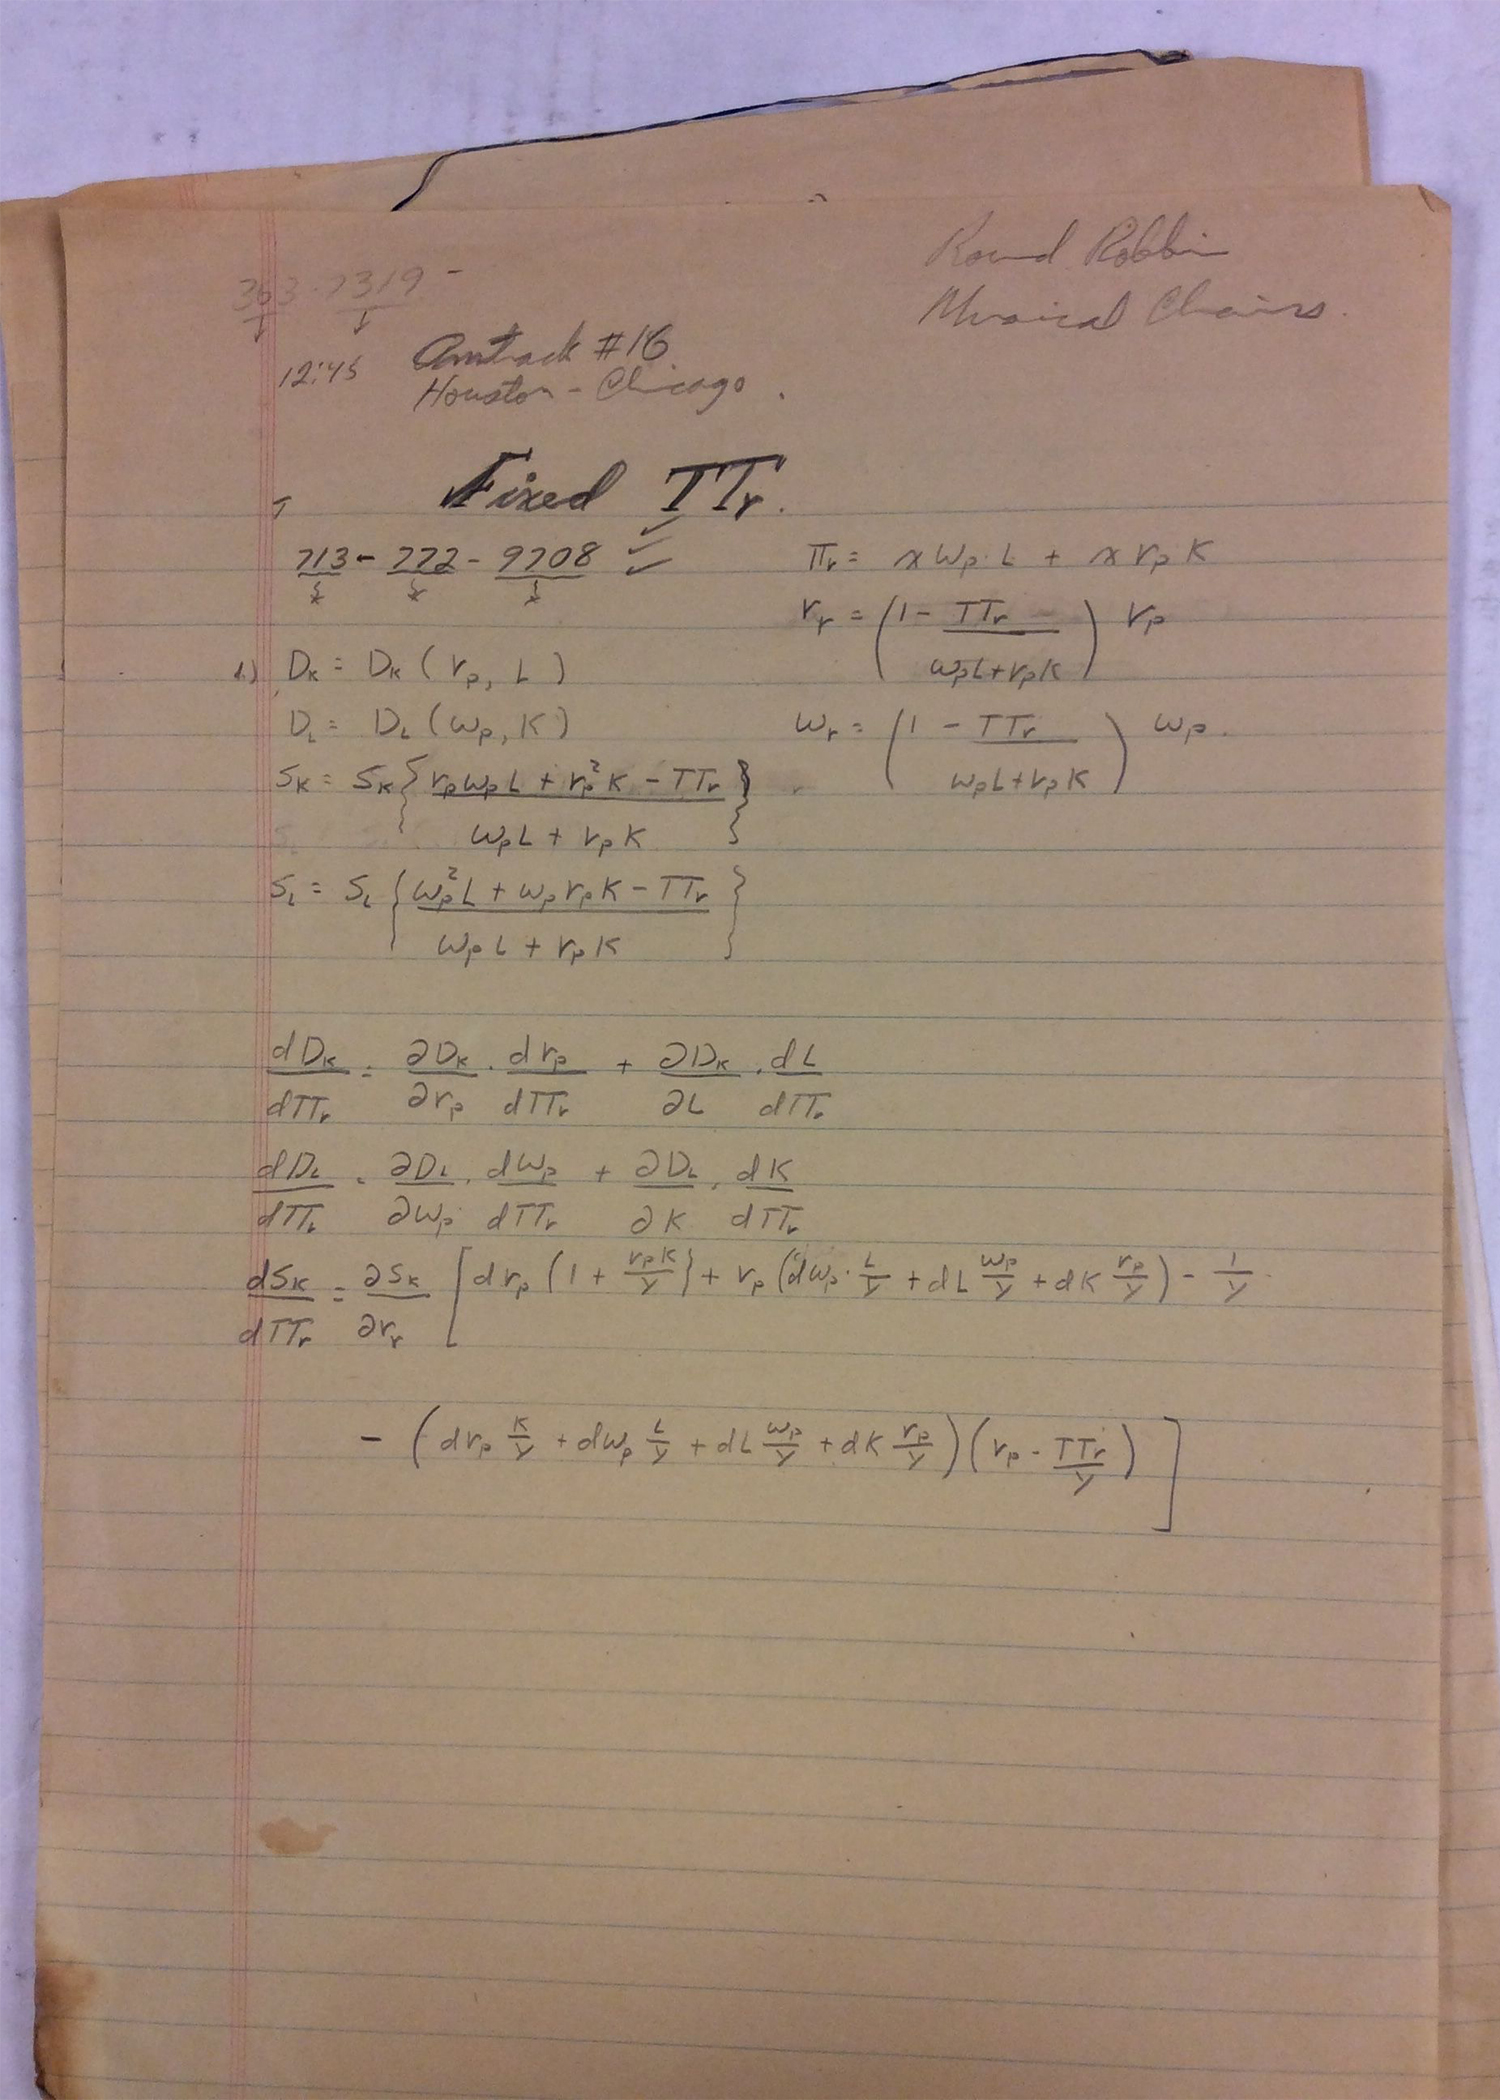 Round Robbin
Musical Chairs.
363-7319 -
12:45 Amtrack #16
Houston - Chicago.
Fixed TTr.
713 - 772 - 9708 ✓✓✓
πr = x wp · L + x rp K
rr = (1 - TTr / wpL + rpK) rp
1.) DK = DK (rp, L)
DL = DL (wp, K)
wr = (1 - TTr / wpL + rpK) wp.
SK = SK { rp wp L + rp² K - TTr / wp L + rp K }
SL = SL { wp² L + wp rp K - TTr / wp L + rp K }
dDK / dTTr = ∂DK / ∂rp · drp / dTTr + ∂DK / ∂L · dL / dTTr
dDL / dTTr = ∂DL / ∂wp · dwp / dTTr + ∂DL / ∂K · dK / dTTr
dSK / dTTr = ∂SK / ∂rr [ drp (1 + rpK / y) + rp (dwp · L / y + dL wp / y + dK rp / y) - 1 / y
- (drp K / y + dwp L / y + dL wp / y + dK rp / y) (rp - TTr / y) ]